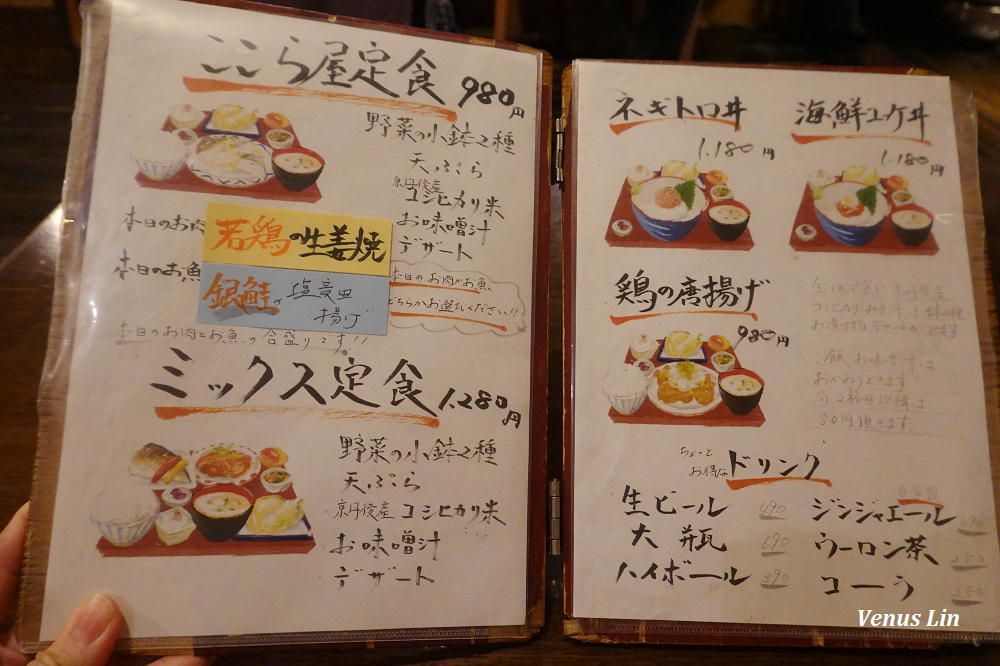 こころ屋定食 980円
野菜の小鉢2種
天ぷら
京丹後産
コシヒカリ米
お味噌汁
デザート
本日のお肉
若鶏の生姜焼
本日のお魚
銀鮭の塩竜田
揚げ
本日のお肉かお魚、
どちらかお選びください!!
本日のお肉とお魚の合盛りです!!
ミックス定食 1.280円
野菜の小鉢2種
天ぷら
京丹後産 コシヒカリ米
お味噌汁
デザート
ネギトロ丼
1.180円
海鮮ユケ丼
1.180円
鶏の唐揚げ
980円
ご飯、お味噌汁は
おかわりできます
50円頂きます。
ちょっと
お得な ドリンク
生ビール 490
大瓶 690
ハイボール 390
自家製
ジンジャエール
ウーロン茶 250
コーラ 250
Venus Lin